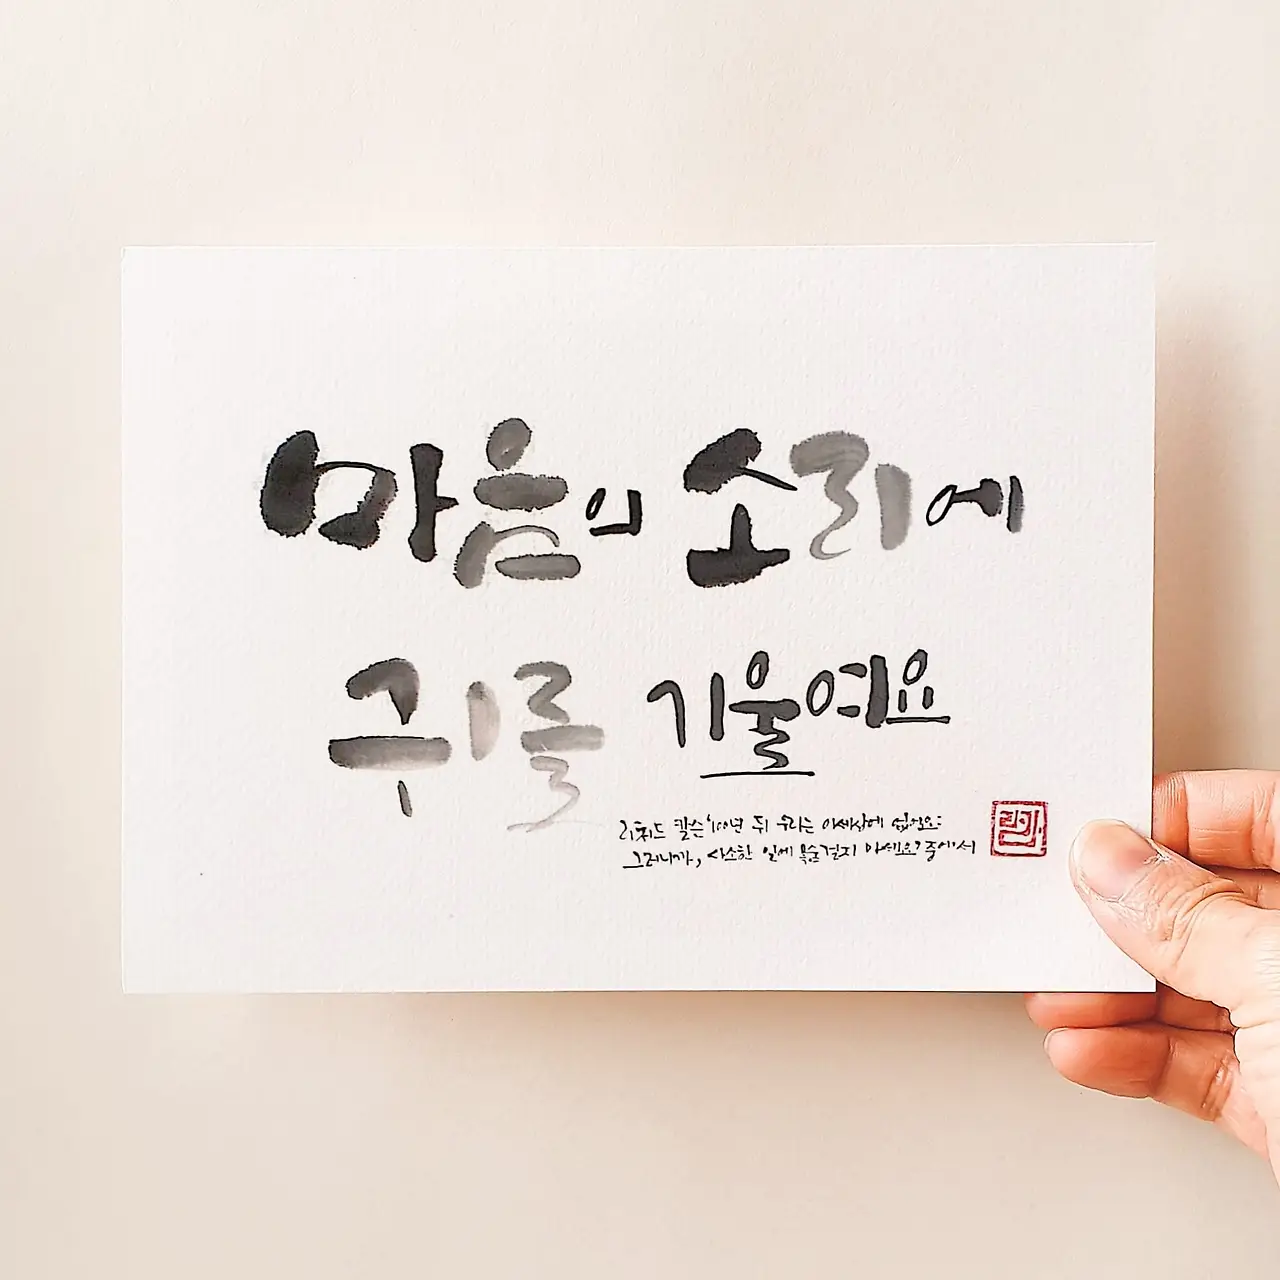 마음의 소리에
귀를 기울여요
리처드 칼슨 '100년 뒤 우리는 이세상에 없어요:
그러니까, 사소한 일에 목숨걸지 마세요' 중에서